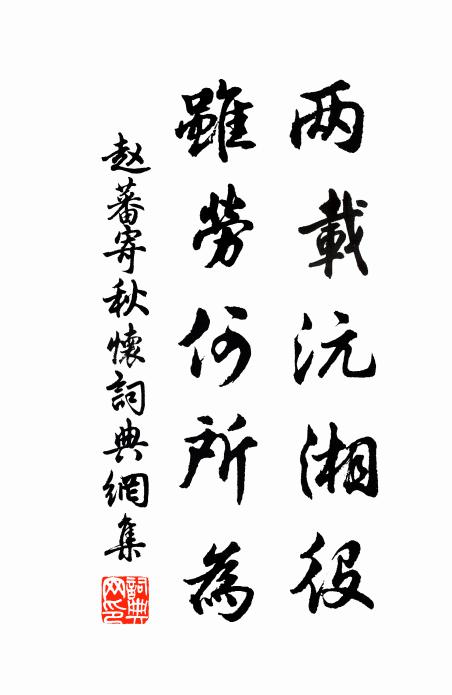 两載沅湘役
雖勞何所為
赵蕃寄秋懷詞典網集
詞典網印